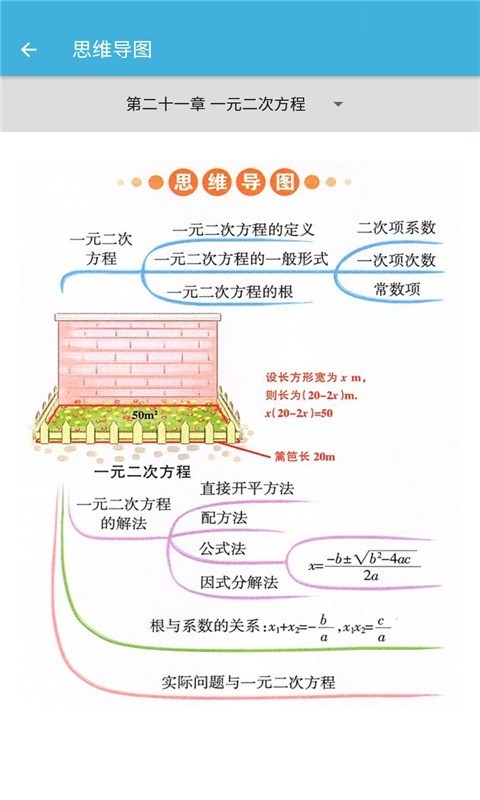 思维导图
第二十一章 一元二次方程
思维导图
一元二次
方程
一元二次方程的定义
一元二次方程的一般形式
一元二次方程的根
二次项系数
一次项次数
常数项
设长方形宽为 x m，
则长为(20-2x)m.
x(20-2x)=50
50m²
篱笆长 20m
一元二次方程
一元二次方程
的解法
直接开平方法
配方法
公式法
因式分解法
x=(-b±√(b²-4ac))/2a
根与系数的关系：x₁+x₂=-b/a，x₁x₂=c/a
实际问题与一元二次方程